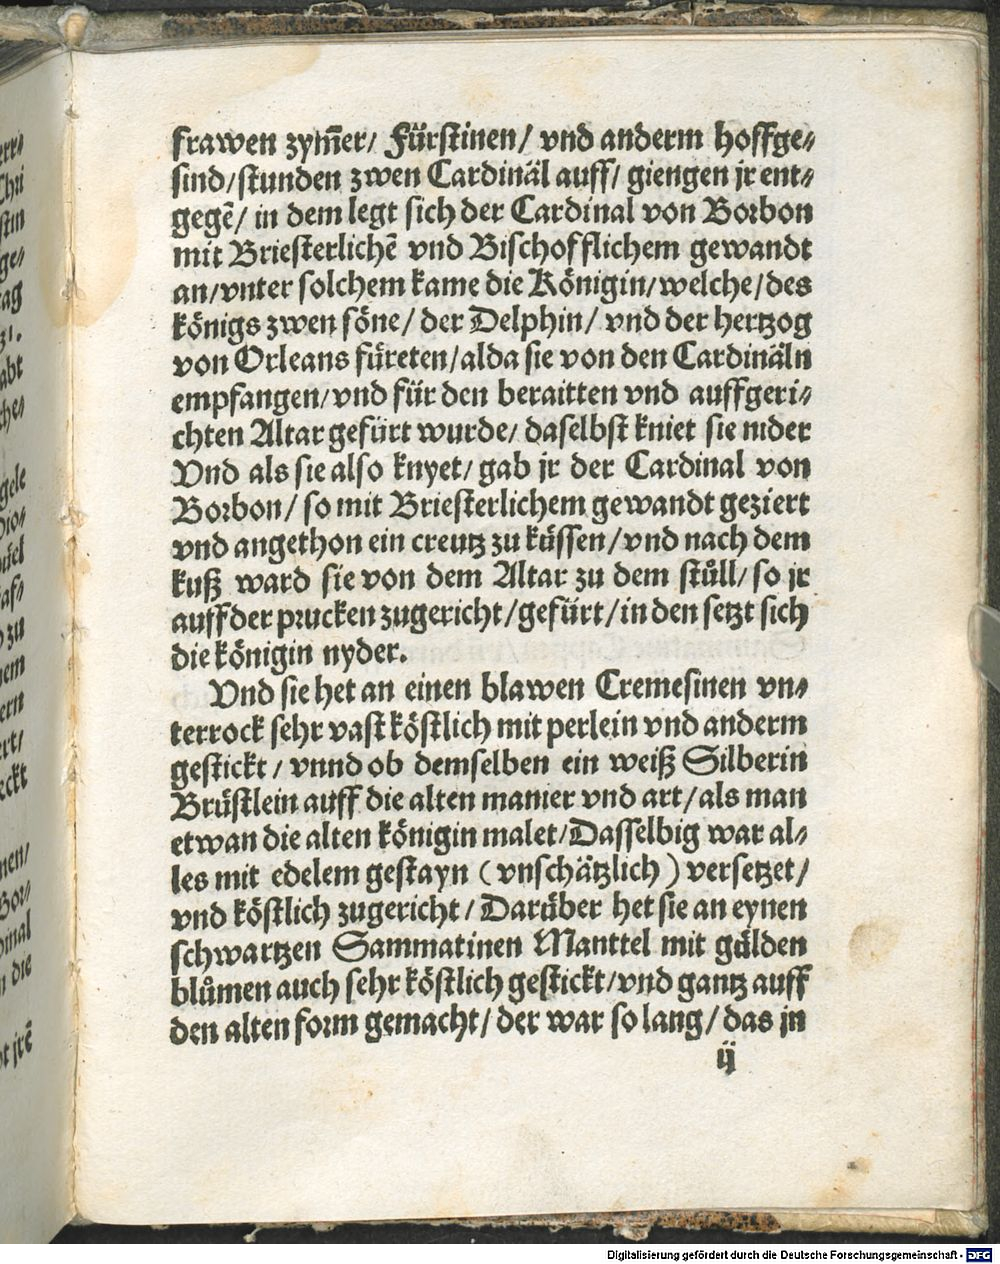 frawen zym̄er/ Fürstinen/ vnd anderm hoffge⸗
sind/stunden zwen Cardinäl auff/ giengen jr ent⸗
gegē/ in dem legt sich der Cardinal von Borbon
mit Briesterlichē vnd Bischofflichem gewandt
an/vnter solchem kame die Königin/welche/des
königs zwen söne/ der Delphin/ vnd der hertzog
von Orleans füreten/alda sie von den Cardinäln
empfangen/vnd für den beraitten vnd auffgeri⸗
chten Altar gefürt wurde/ daselbst kniet sie nider
Vnd als sie also knyet/ gab jr der Cardinal von
Borbon/ so mit Briesterlichem gewandt geziert
vnd angethon ein creutz zu küssen/vnd nach dem
kuß ward sie von dem Altar zu dem stůll/ so jr
auff der prucken zugericht/gefürt/in den setzt sich
die königin nyder.
Vnd sie het an einen blawen Cremesinen vn⸗
terrock sehr vast köstlich mit perlein vnd anderm
gestickt/ vnnd ob demselben ein weiß Silberin
Brüstlein auff die alten manier vnd art/als man
etwan die alten königin malet/Dasselbig war al⸗
les mit edelem gestayn (vnschätzlich) versetzet/
vnd köstlich zugericht/ Darüber het sie an eynen
schwartzen Sammatinen Manttel mit gülden
blůmen auch sehr köstlich gestickt/vnd gantz auff
den alten form gemacht/ der war so lang/ das jn
ij
Digitalisierung gefördert durch die Deutsche Forschungsgemeinschaft - DFG